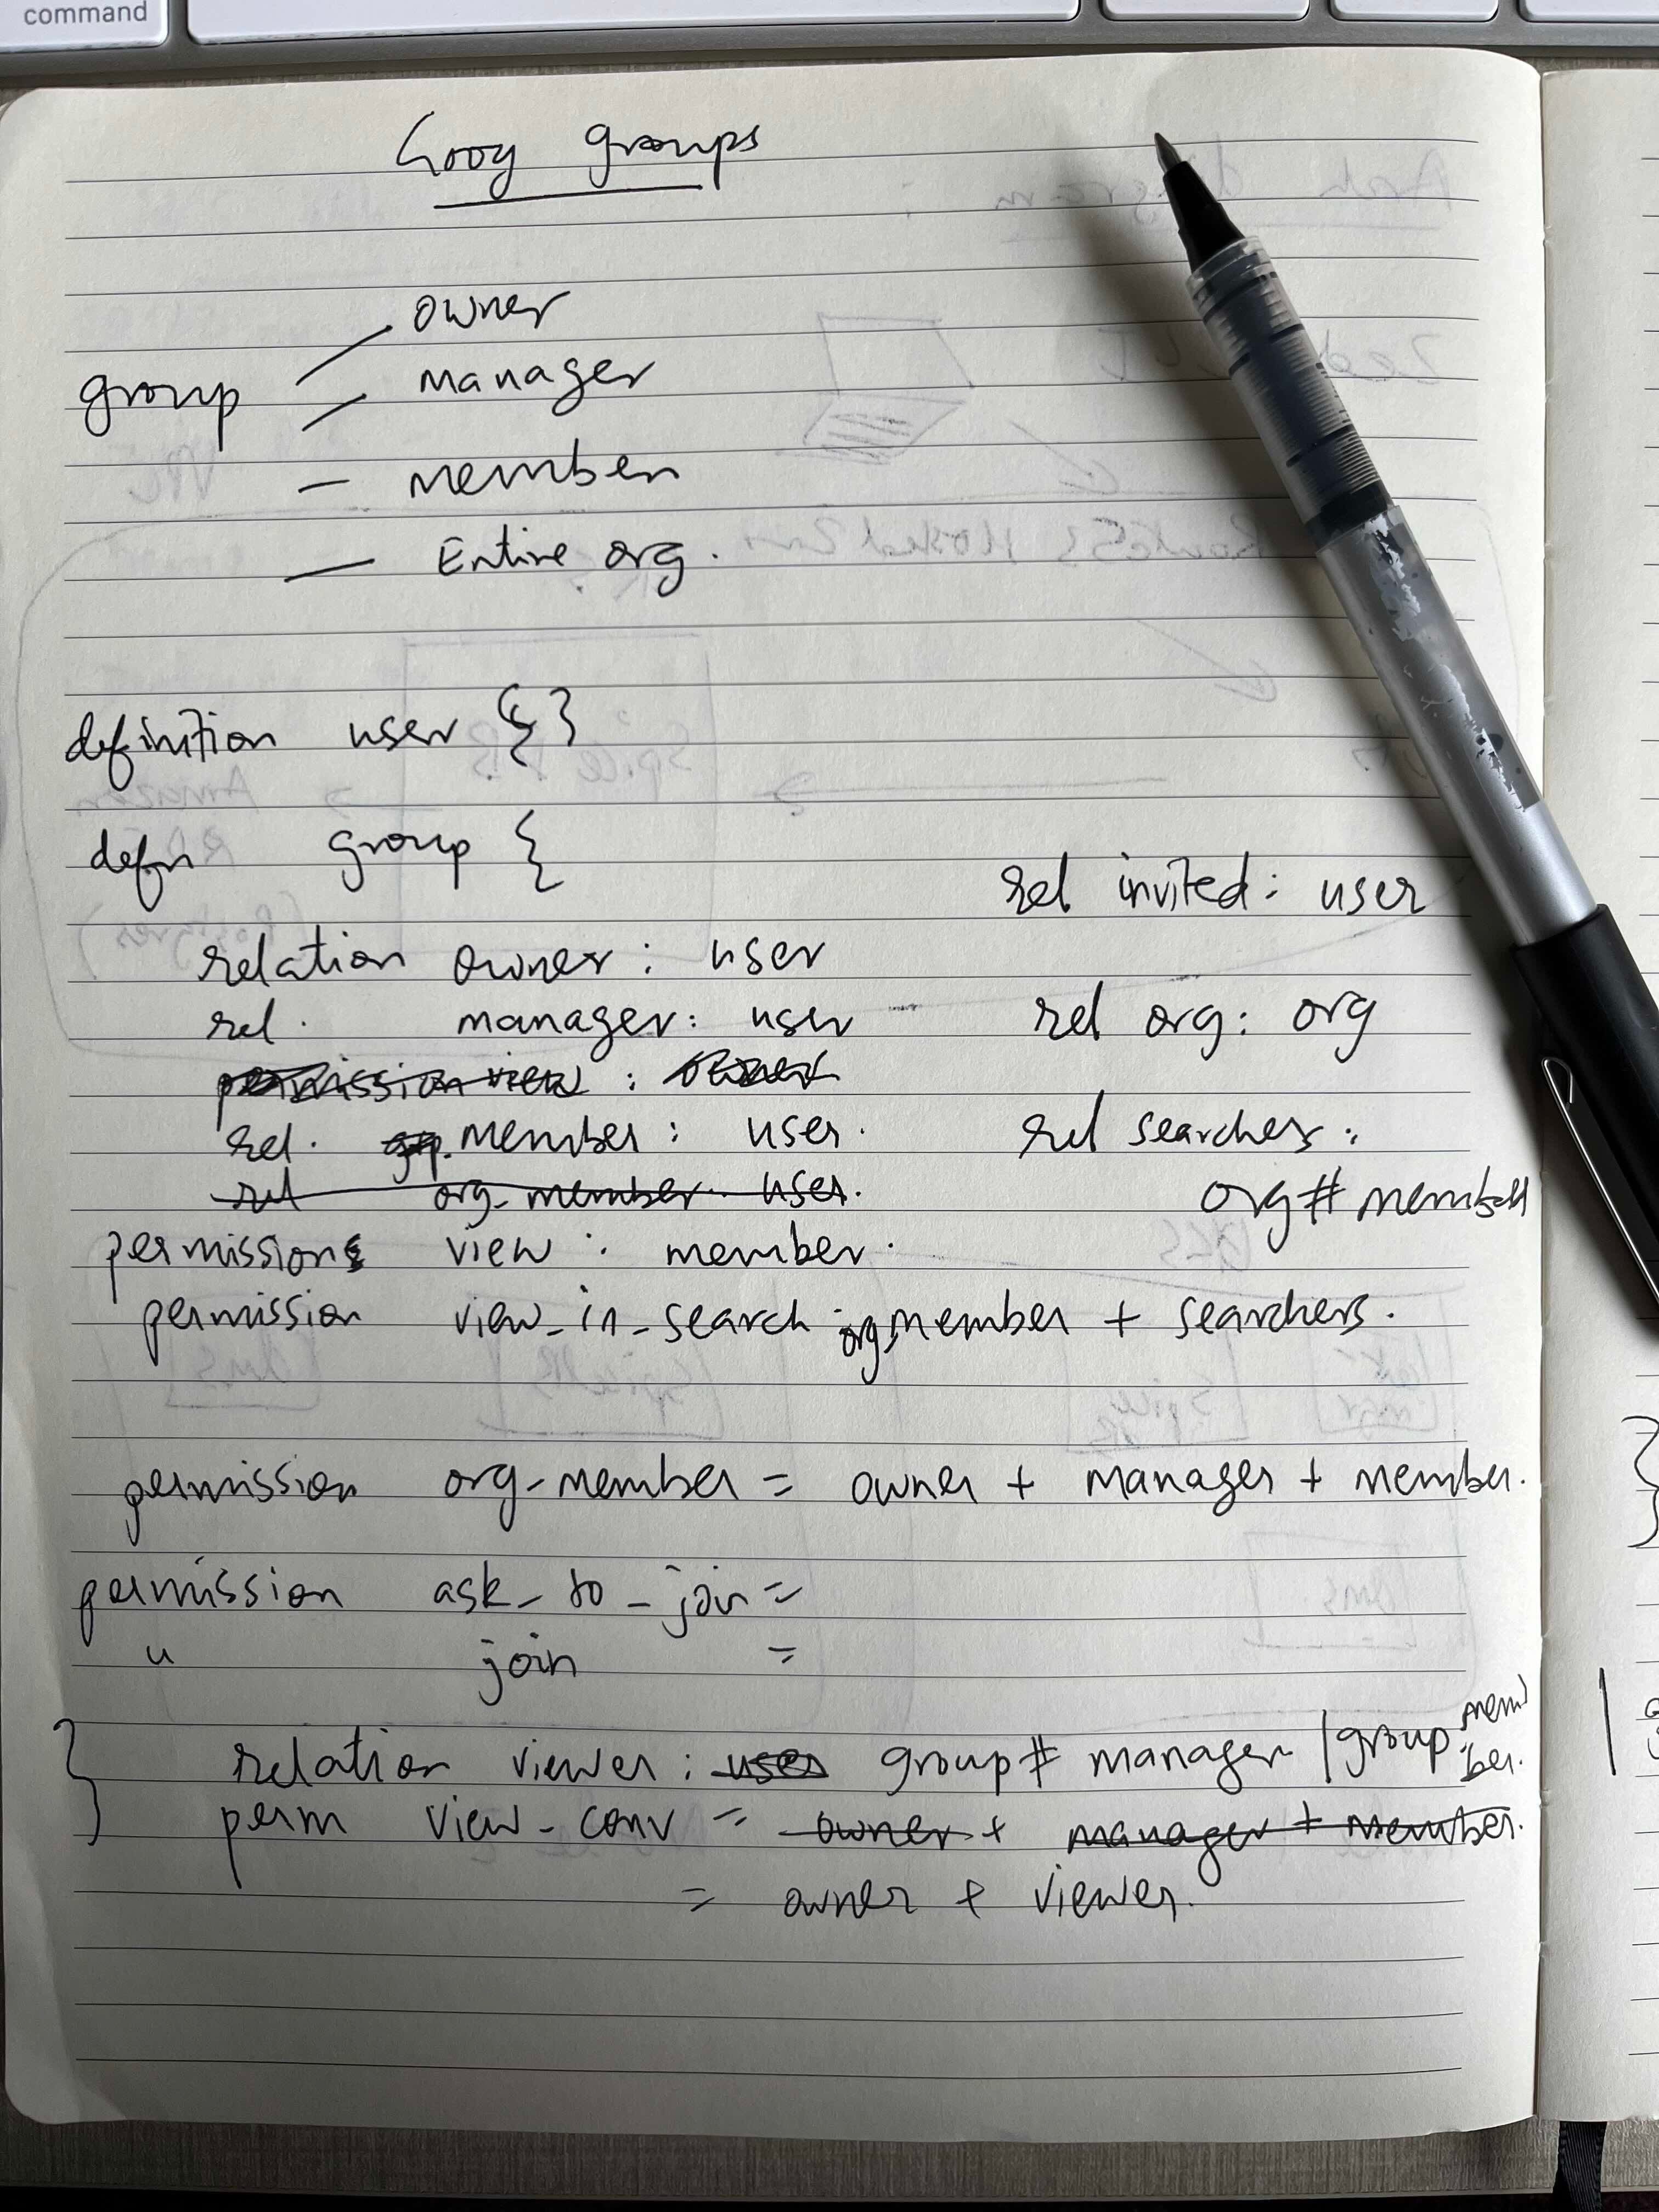 command
Goog groups
owner
group
manager
member
Entire org.
definition user { }
defn group {
rel invited: user
relation owner: user
rel. manager: user
rel org: org
permission view :
rel. member: user.
rel searchers:
rel org-member: user.
org # member
permissions view : member.
permission view_in_search : org_member + searchers.
permission org-member = owner + manager + member.
permission ask_to_join =
" join =
} relation viewer: user group# manager | group. member.
perm view_conv = owner + manager + member.
= owner + viewer.